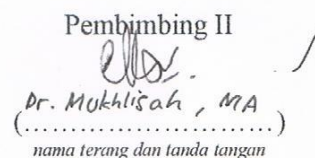 Pembimbing II
Dr. Mukhlisah, MA
(..............................)
nama terang dan tanda tangan